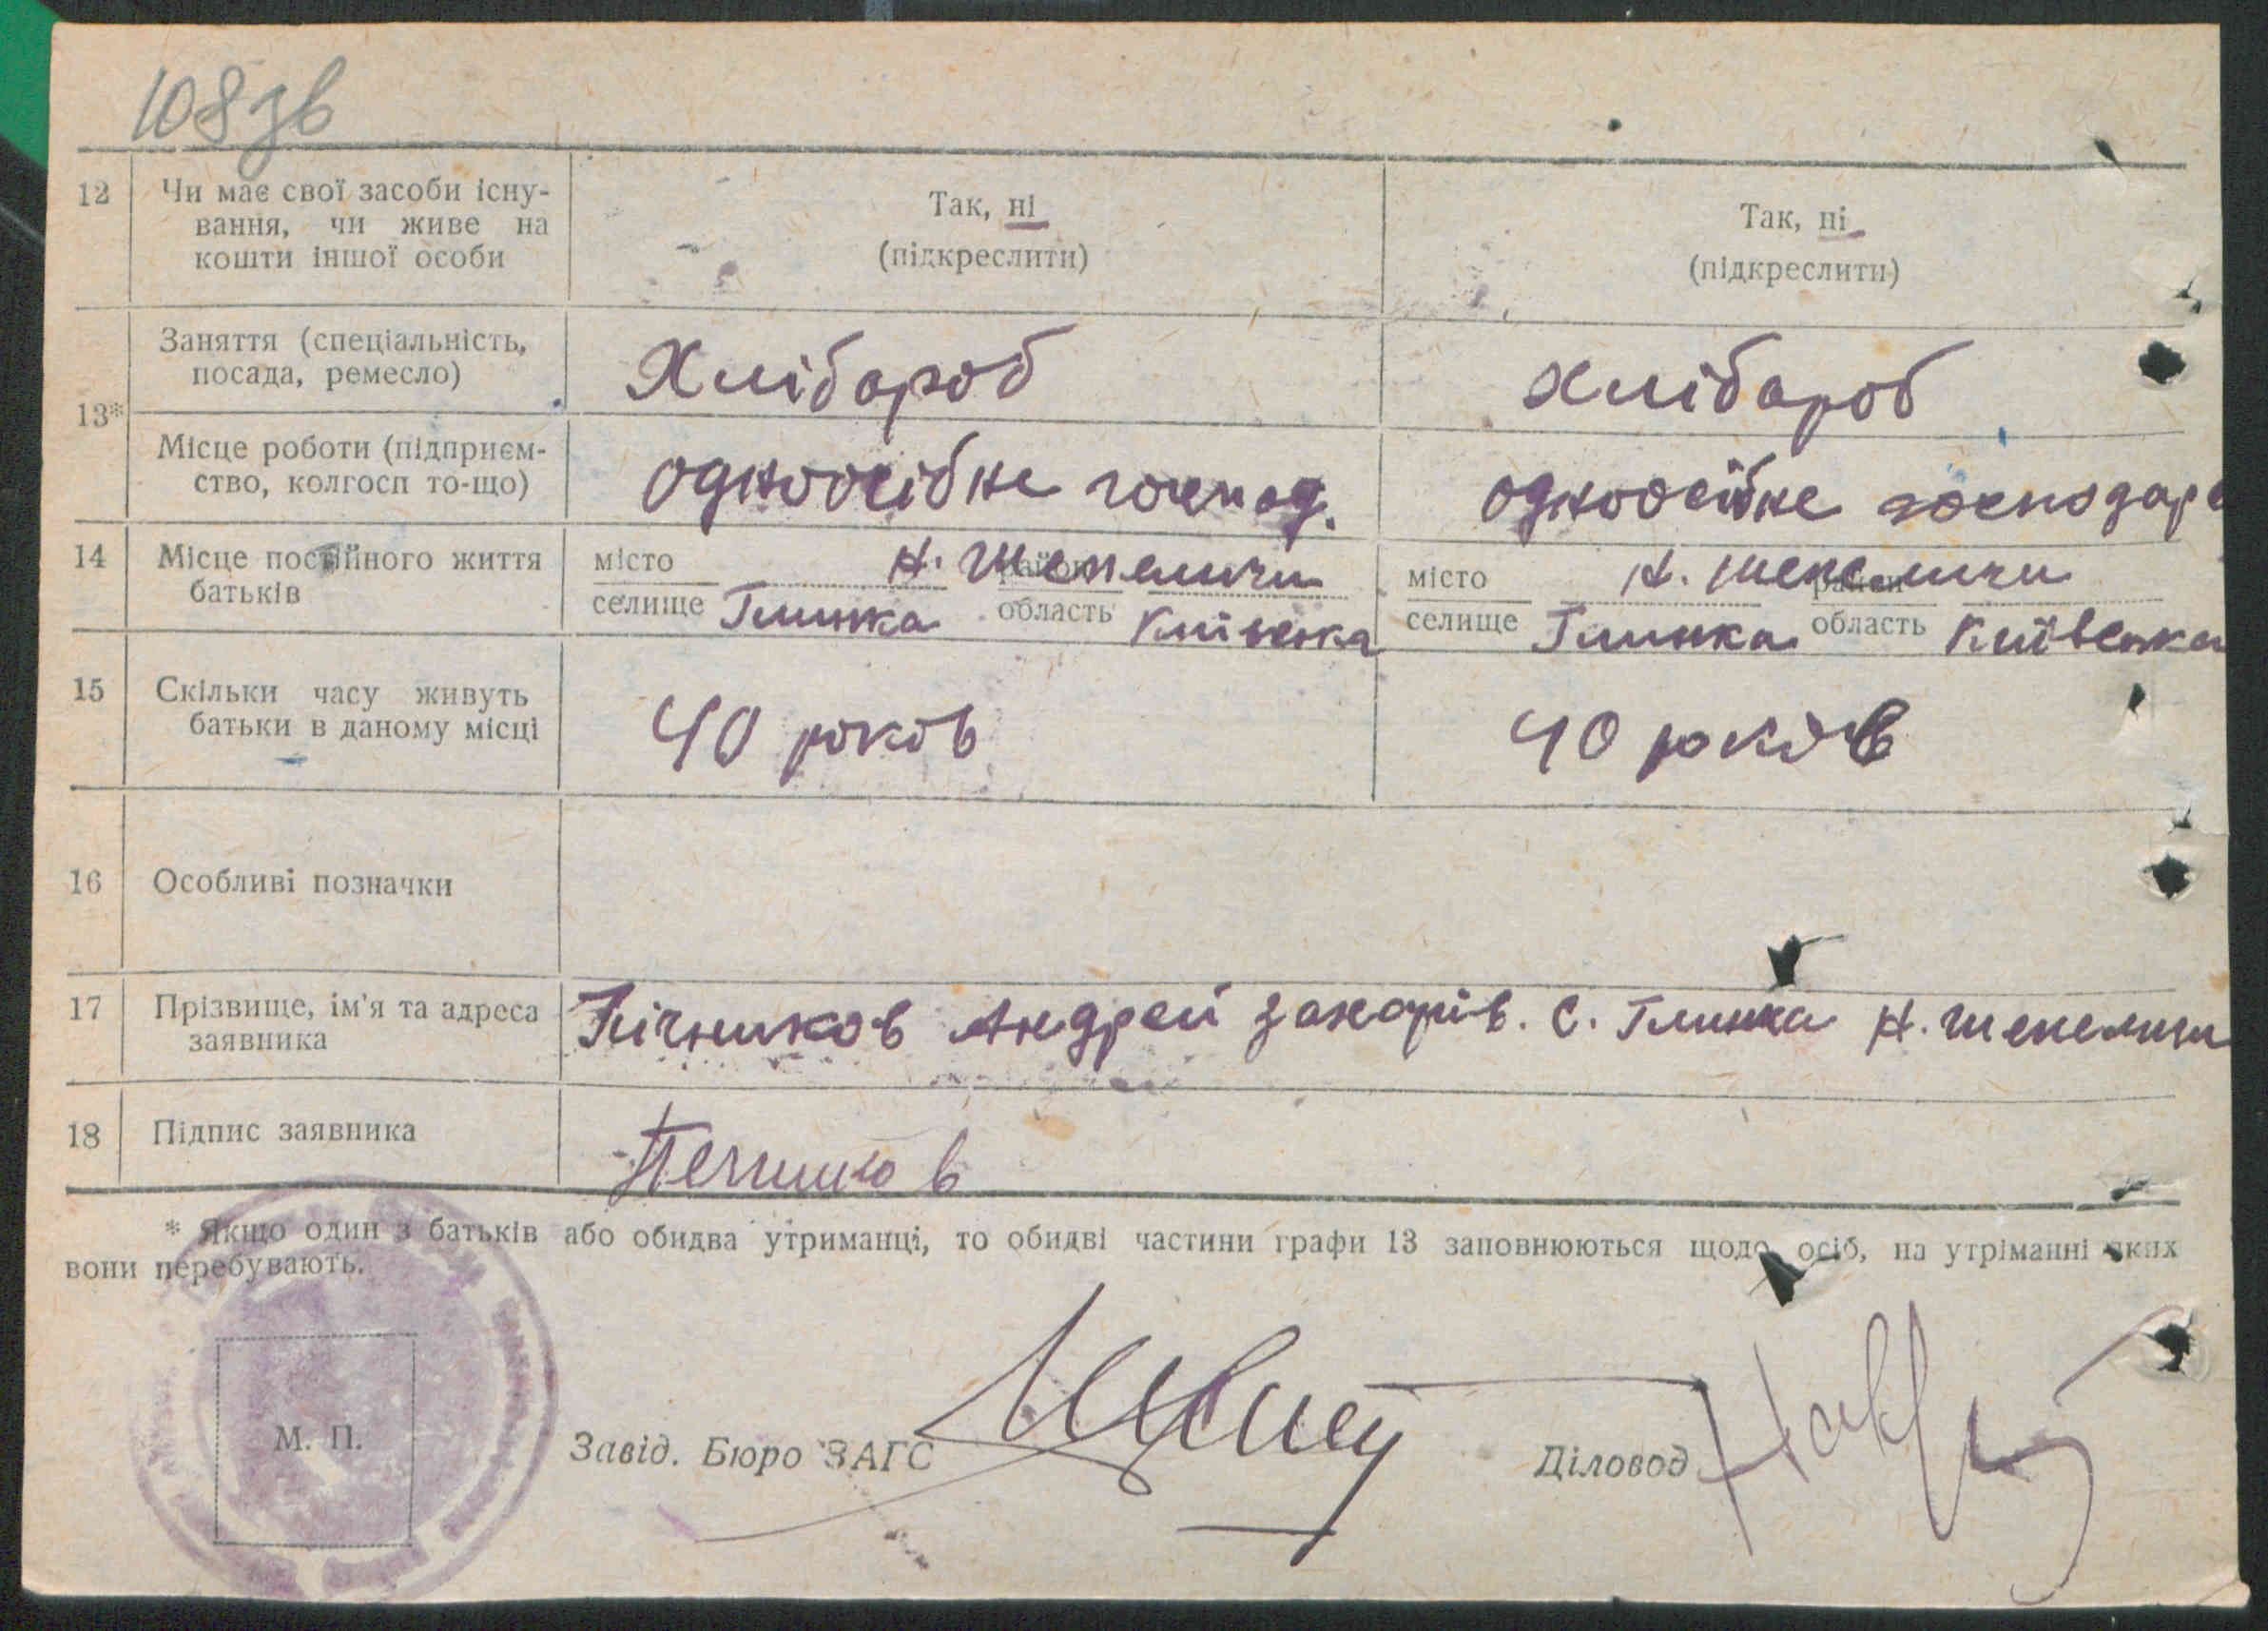 108 зв
12 Чи має свої засоби існу-
вання, чи живе на
кошти іншої особи
Так, ні
(підкреслити)
Так, ні
(підкреслити)
13*
Заняття (спеціальність,
посада, ремесло)
Хлібороб
хлібороб
Місце роботи (підприєм-
ство, колгосп то-що)
одноосібне господ.
одноосібне господар
14 Місце постійного життя
батьків
місто Н. Шепеличи район
селище Глинка область Київська
місто Н. Шепеличи район
селище Глинка область Київська
15 Скільки часу живуть
батьки в даному місці
40 років
40 років
16 Особливі позначки
17 Прізвище, ім'я та адреса
заявника
Пічников Андрей Захарів. С. Глинка Н. Шепеличи
18 Підпис заявника
* Якщо один з батьків або обидва утриманці, то обидві частини графи 13 заповнюються щодо осіб, на утріманні яких
вони перебувають.
М. П.
Завід. Бюро ЗАГС
Діловод